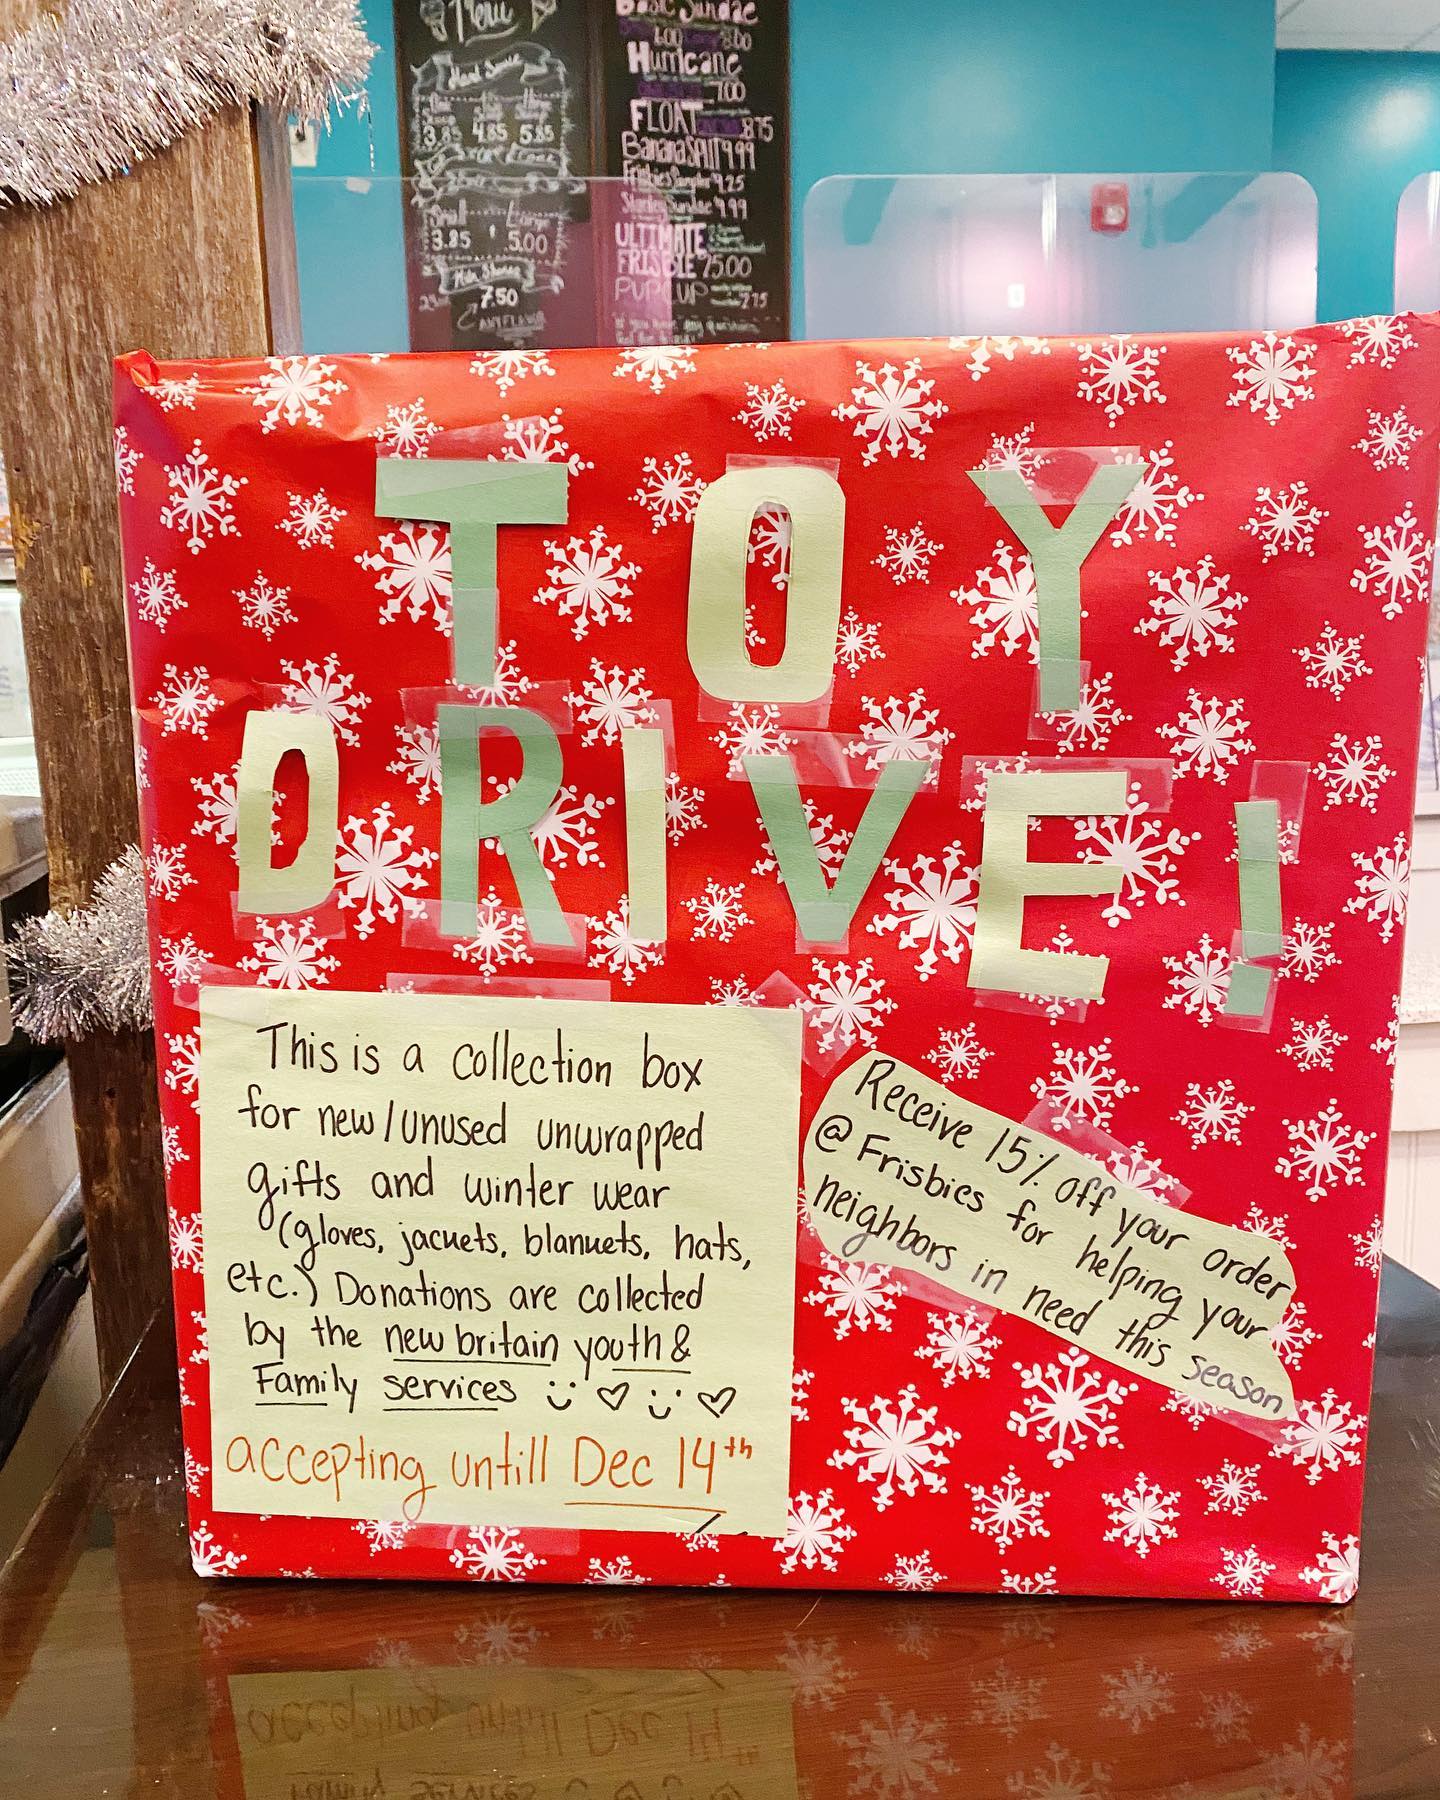 Menu
Hard Scoop
3.85 4.85 5.85
Small Large
3.85 5.00
Milk Shakes
7.50
ANY FLAVOR
Basic Sundae
8.00
Hurricane
7.00
FLOAT 8.75
Banana Split 9.99
Frisbies Sampler 9.25
Sundae 9.99
ULTIMATE
FRISBIE 25.00
PUP CUP 2.75
TOY
DRIVE!
This is a collection box
for new/unused unwrapped
gifts and winter wear
(gloves, jackets, blankets, hats,
etc.) Donations are collected
by the new britain youth &
Family services
accepting untill Dec 14th
Receive 15% off your order
@ Frisbies for helping your
neighbors in need this season